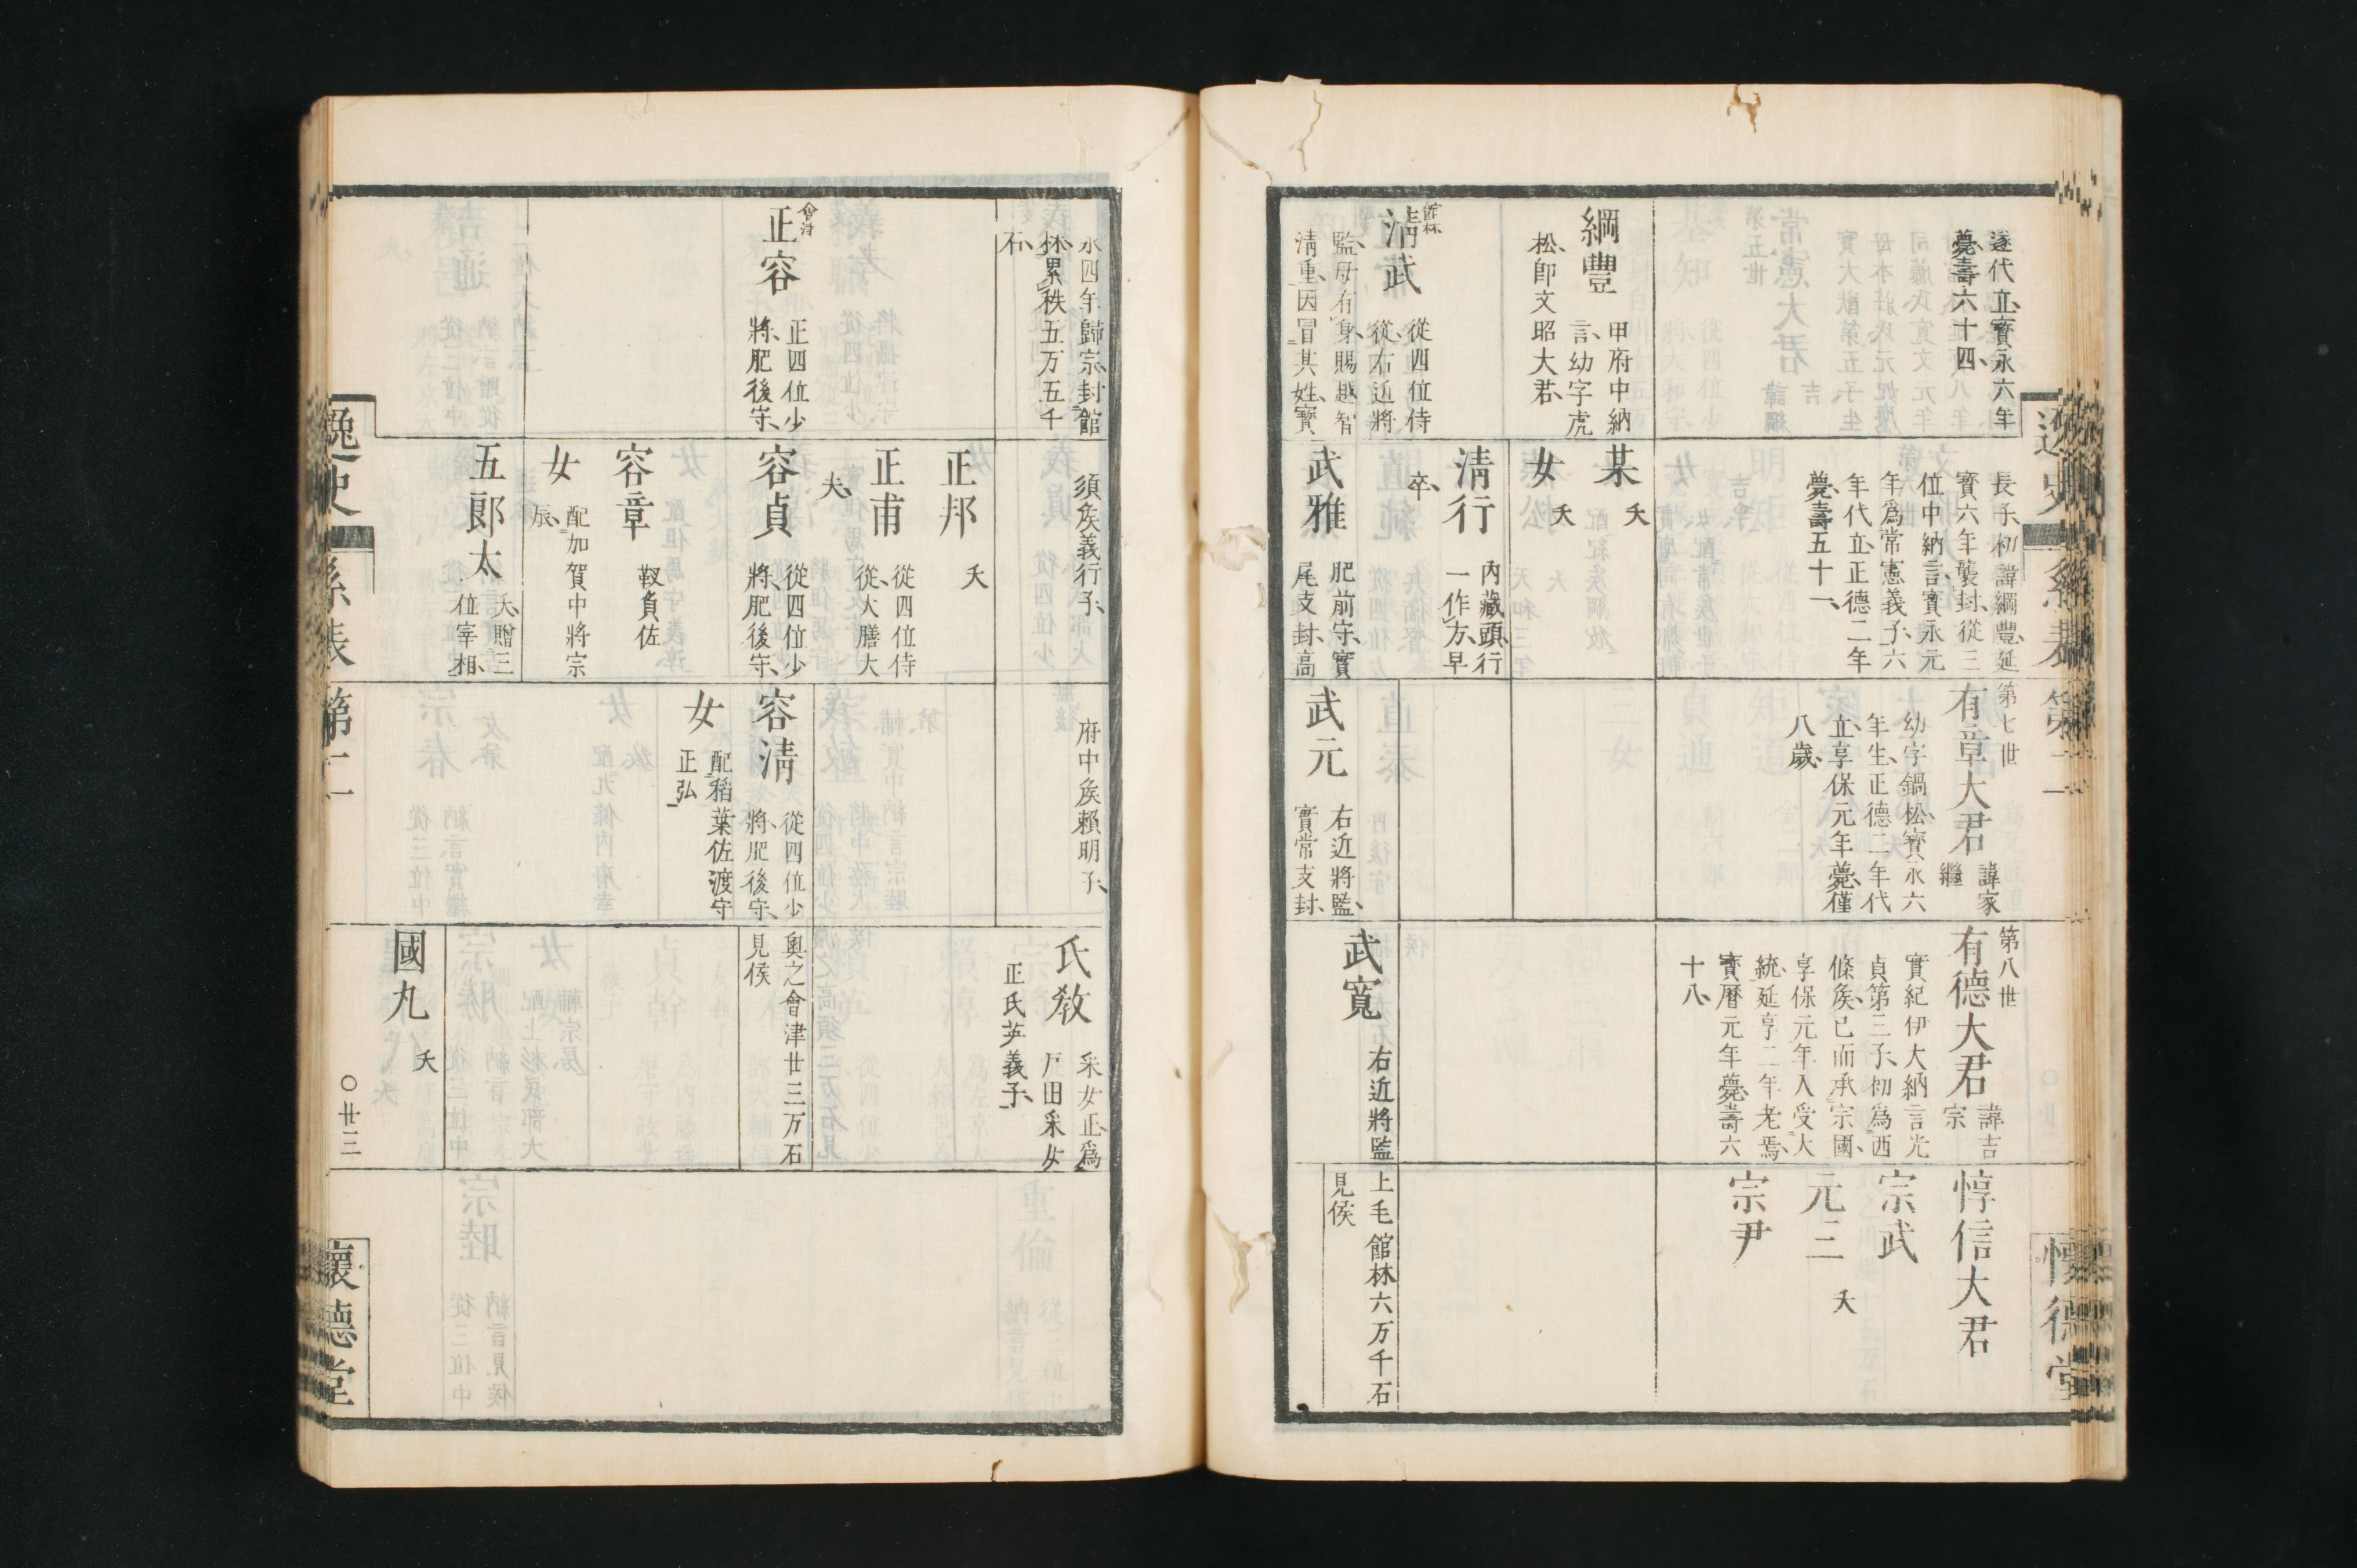 逸史
系表
第二
懷德堂
遂代立寶永六年
薨壽六十四
綱豐
甲府中納
言幼字虎
松即文昭大君
館林
清武
從四位侍
從右近將
監母有身賜越智
清重因冒其姓寶
長子初諱綱豐延
寶六年襲封從三
位中納言寶永元
年爲常憲義子六
年代立正德二年
薨壽五十一
某
夭
女
夭
清行
內藏頭行
一作方早
卒
武雅
肥前守實
尾支封高
第七世
有章大君
諱家
繼
幼字鍋松寶永六
年生正德二年代
立享保元年薨僅
八歲
武元
右近將監
實常支封
第八世
有德大君
諱吉
宗
實紀伊大納言光
貞第三子初爲西
條矦已而承宗國
享保元年入受大
統延享二年老焉
寶曆元年薨壽六
十八
武寬
右近將監
惇信大君
宗武
元二
夭
宗尹
上毛館林六万千石
見侯
永四年歸宗封館
林累秩五万五千
石
會津
正容
正四位少
將肥後守
須矦義行子
正邦
夭
正甫
從四位侍
從大膳大
夫
容貞
從四位少
將肥後守
容章
靱負佐
女
配加賀中將宗
辰
五郎太
夭贈三
位宰相
府中矦賴明子
容淸
從四位少
將肥後守
女
配稻葉佐渡守
正弘
氏敎
采女正爲
戶田采女
正氏英義子
奧之會津廿三万石
見侯
國丸
夭
逸史
系表
第二
〇廿三
懷德堂